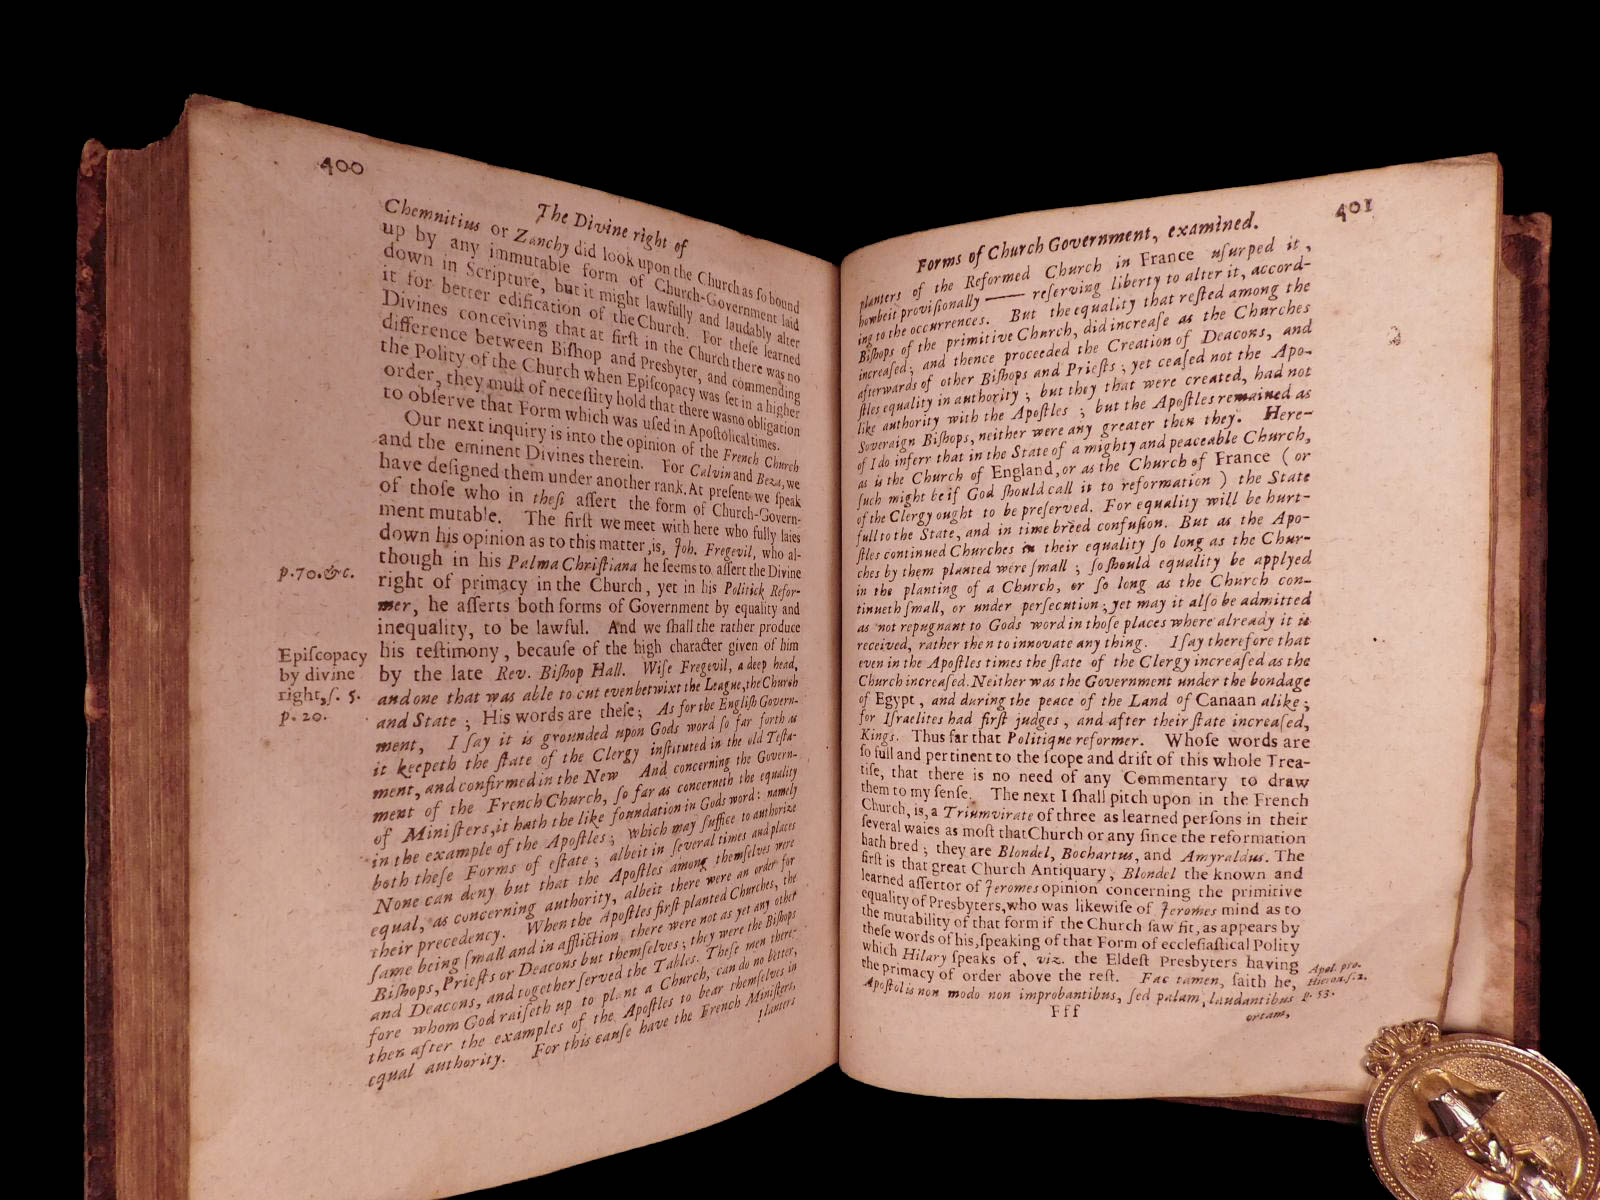 400
The Divine right of
Chemnitius or Zanchy did look upon the Church as ſo bound
up by any immutable form of Church-Government laid
down in Scripture, but it might lawfully and laudably alter
it for better edification of the Church. For theſe learned
Divines conceiving that at firſt in the Church there was no
difference between Biſhop and Presbyter, and commending
the Polity of the Church when Epiſcopacy was ſet in a higher
order, they muſt of neceſſity hold that there was no obligation
to obſerve that Form which was uſed in Apoſtolical times.
Our next inquiry is into the opinion of the French Church
and the eminent Divines therein. For Calvin and Beza, we
have deſigned them under another rank. At preſent we ſpeak
of thoſe who in theſi aſſert the form of Church-Govern-
ment mutable. The firſt we meet with here who fully laies
down his opinion as to this matter, is, Joh. Fregevil, who al-
though in his Palma Chriſtiana he ſeems to aſſert the Divine
p.70.&c.
right of primacy in the Church, yet in his Politick Refor-
mer, he aſſerts both forms of Government by equality and
inequality, to be lawful. And we ſhall the rather produce
his teſtimony, becauſe of the high character given of him
Epiſcopacy
by divine
right, ſ. 5.
p. 20.
by the late Rev. Biſhop Hall. Wiſe Fregevil, a deep head,
and one that was able to cut even betwixt the League, the Church
and State; His words are theſe; As for the Engliſh Govern-
ment, I ſay it is grounded upon Gods word ſo far forth as
it keepeth the ſtate of the Clergy inſtituted in the old Teſta-
ment, and confirmed in the New And concerning the Govern-
ment of the French Church, ſo far as concerneth the equality
of Miniſters, it hath the like foundation in Gods word: namely
in the example of the Apoſtles; which may ſuffice to authorize
both theſe Forms of eſtate; albeit in ſeveral times and places
None can deny but that the Apoſtles among themſelves were
equal, as concerning authority, albeit there were an order for
their precedency. When the Apoſtles firſt planted Churches, the
ſame being ſmall and in affliction, there were not as yet any other
Biſhops, Prieſts or Deacons but themſelves; they were the Biſhops
and Deacons, and together ſerved the Tables. Theſe men there-
fore whom God raiſeth up to plant a Church, can do no better,
then after the examples of the Apoſtles to bear themſelves in
equal authority. For this cauſe have the French Miniſters,
planters
401
Forms of Church Government, examined.
planters of the Reformed Church in France uſurped it,
howbeit proviſionally —— reſerving liberty to alter it, accord-
ing to the occurrences. But the equality that reſted among the
Biſhops of the primitive Church, did increaſe as the Churches
increaſed; and thence proceeded the Creation of Deacons, and
afterwards of other Biſhops and Prieſts; yet ceaſed not the Apo-
ſtles equality in authority; but they that were created, had not
like authority with the Apoſtles; but the Apoſtles remained as
Soveraign Biſhops, neither were any greater then they. Here-
of I do inferr that in the State of a mighty and peaceable Church,
as is the Church of England, or as the Church of France (or
ſuch might be if God ſhould call it to reformation) the State
of the Clergy ought to be preſerved. For equality will be hurt-
full to the State, and in time breed confuſion. But as the Apo-
ſtles continued Churches in their equality ſo long as the Chur-
ches by them planted were ſmall; ſo ſhould equality be applyed
in the planting of a Church, or ſo long as the Church con-
tinueth ſmall, or under perſecution; yet may it alſo be admitted
as not repugnant to Gods word in thoſe places where already it is
received, rather then to innovate any thing. I ſay therefore that
even in the Apoſtles times the ſtate of the Clergy increaſed as the
Church increaſed. Neither was the Government under the bondage
of Egypt, and during the peace of the Land of Canaan alike;
for Iſraelites had firſt judges, and after their ſtate increaſed,
Kings. Thus far that Politique reformer. Whoſe words are
ſo full and pertinent to the ſcope and drift of this whole Trea-
tiſe, that there is no need of any Commentary to draw
them to my ſenſe. The next I ſhall pitch upon in the French
Church, is, a Triumvirate of three as learned perſons in their
ſeveral waies as moſt that Church or any ſince the reformation
hath bred; they are Blondel, Bochartus, and Amyraldus. The
firſt is that great Church Antiquary, Blondel the known and
learned aſſertor of Jeromes opinion concerning the primitive
equality of Presbyters, who was likewiſe of Jeromes mind as to
the mutability of that form if the Church ſaw fit, as appears by
theſe words of his, ſpeaking of that Form of eccleſiaſtical Polity
which Hilary ſpeaks of, viz. the Eldeſt Presbyters having
the primacy of order above the reſt. Fac tamen, ſaith he,
Apoſtolis non modo non improbantibus, ſed palam laudantibus
Apol. pro.
Hieron. ſ. 2.
p. 53.
Fff
ortam,